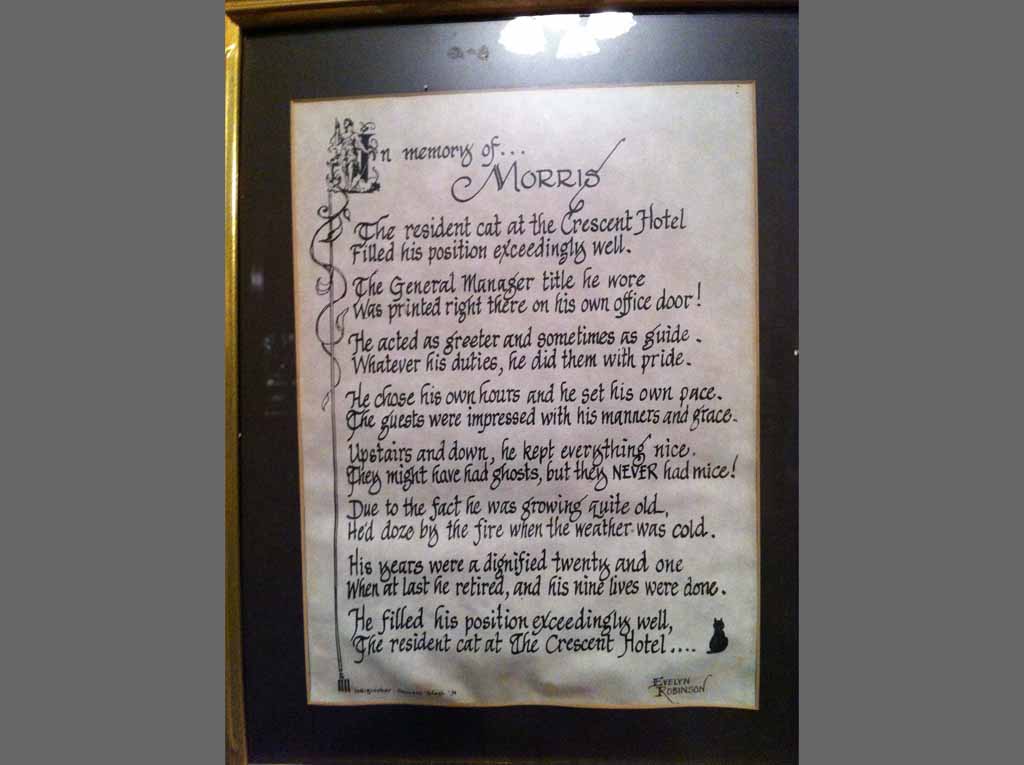 In memory of...
MORRIS
The resident cat at the Crescent Hotel
Filled his position exceedingly well.
The General Manager title he wore
Was printed right there on his own office door!
He acted as greeter and sometimes as guide.
Whatever his duties, he did them with pride.
He chose his own hours and he set his own pace.
The guests were impressed with his manners and grace.
Upstairs and down, he kept everything nice.
They might have had ghosts, but they NEVER had mice!
Due to the fact he was growing quite old,
He'd doze by the fire when the weather was cold.
His years were a dignified twenty and one
When at last he retired, and his nine lives were done.
He filled his position exceedingly well,
The resident cat at The Crescent Hotel....
EVELYN
ROBINSON